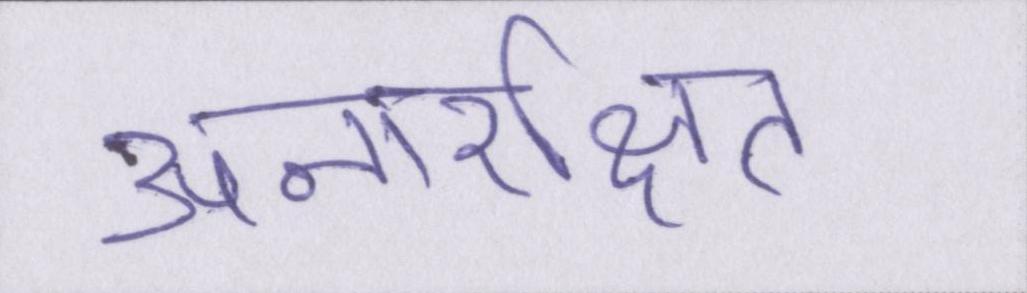 अनारक्षित